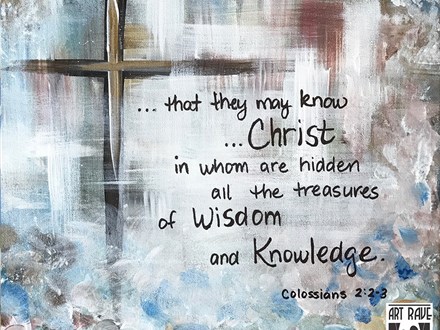 ... that they may know
... Christ
in whom are hidden
all the treasures
of Wisdom
and Knowledge.
Colossians 2:2-3
ART RAVE